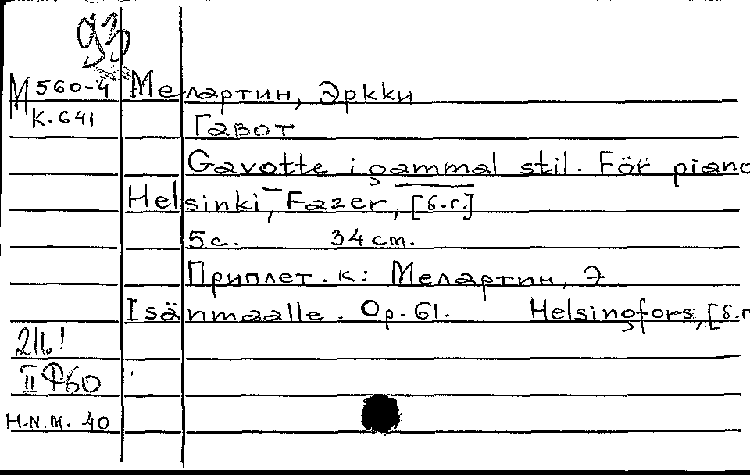 93
М 560-4 Мелартин, Эркки
К. 641
Гавот
Gavotte i gammal stil. För piano
Helsinki, Fazer, [б.г.]
5 с. 34 cm.
Приплет. к: Мелартин, Э
Isänmaalle. Op. 61. Helsingfors, [б.г
II Ф60
H.N.M. 40